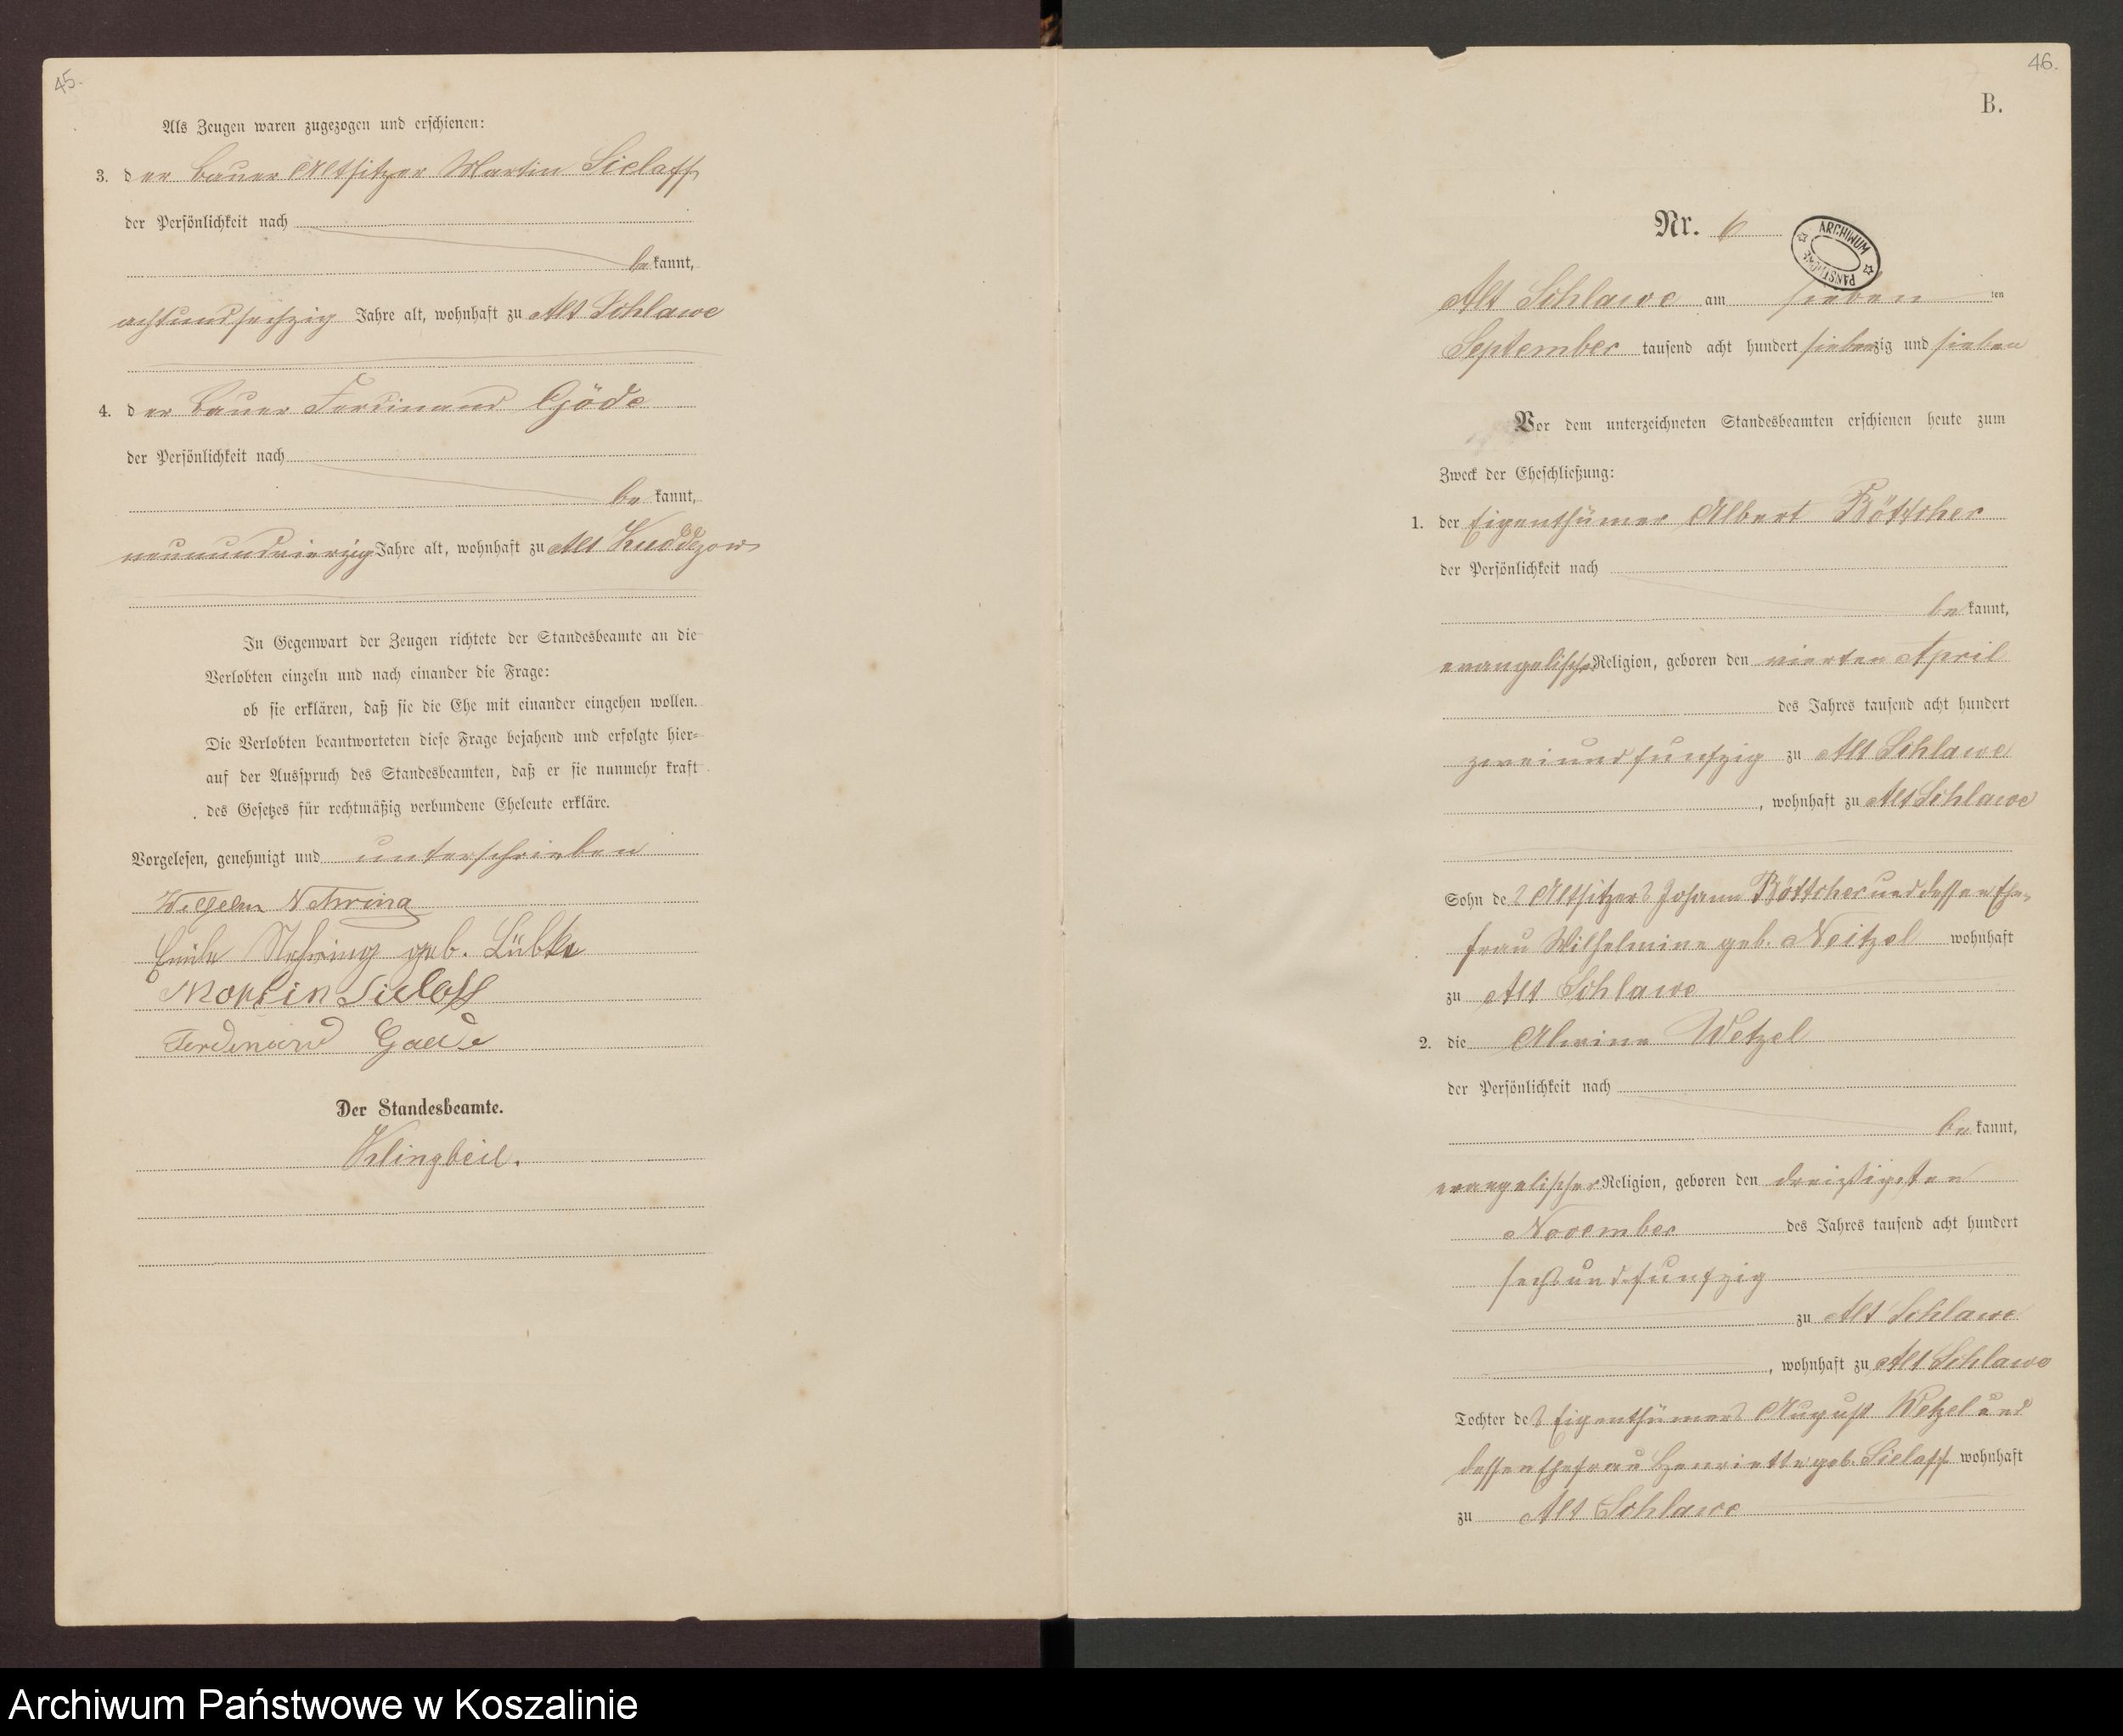 45.
Als Zeugen waren zugezogen und erschienen:
3. der Bauer Altsitzer Martin Sielaff
der Persönlichkeit nach
bekannt,
achtundsechzig Jahre alt, wohnhaft zu Alt Schlawe
4. der Bauer Ferdinand Göde
der Persönlichkeit nach
bekannt,
neunundvierzig Jahre alt, wohnhaft zu Alt Kuddezow
In Gegenwart der Zeugen richtete der Standesbeamte an die
Verlobten einzeln und nach einander die Frage:
ob sie erklären, daß sie die Ehe mit einander eingehen wollen.
Die Verlobten beantworteten diese Frage bejahend und erfolgte hier-
auf der Ausspruch des Standesbeamten, daß er sie nunmehr kraft
des Gesetzes für rechtmäßig verbundene Eheleute erkläre.
Vorgelesen, genehmigt und unterschrieben
Wilhelm Nehring
Emile Nehring geb. Lübke
Martin Sielaff
Ferdinand Gaede
Der Standesbeamte.
Klingbeil.
46.
B.
Nr. 6
ARCHIWUM PAŃSTWOWE
Alt Schlawe am sieben ten
September tausend acht hundert siebenzig und sieben
Vor dem unterzeichneten Standesbeamten erschienen heute zum
Zweck der Eheschließung:
1. der Eigenthümer Albert Böttcher
der Persönlichkeit nach
bekannt,
evangelischer Religion, geboren den vierten April
des Jahres tausend acht hundert
zweiundfunfzig zu Alt Schlawe
, wohnhaft zu Alt Schlawe
Sohn des Altsitzers Johann Böttcher und dessen Ehe-
frau Wilhelmine geb. Neitzel wohnhaft
zu Alt Schlawe
2. die Alwine Wetzel
der Persönlichkeit nach
bekannt,
evangelischer Religion, geboren den dreißigsten
November des Jahres tausend acht hundert
sechsundfunfzig
zu Alt Schlawe
, wohnhaft zu Alt Schlawe
Tochter des Eigenthümers August Wetzel und
dessen Ehefrau Henriette geb. Sielaff wohnhaft
zu Alt Schlawe
Archiwum Państwowe w Koszalinie